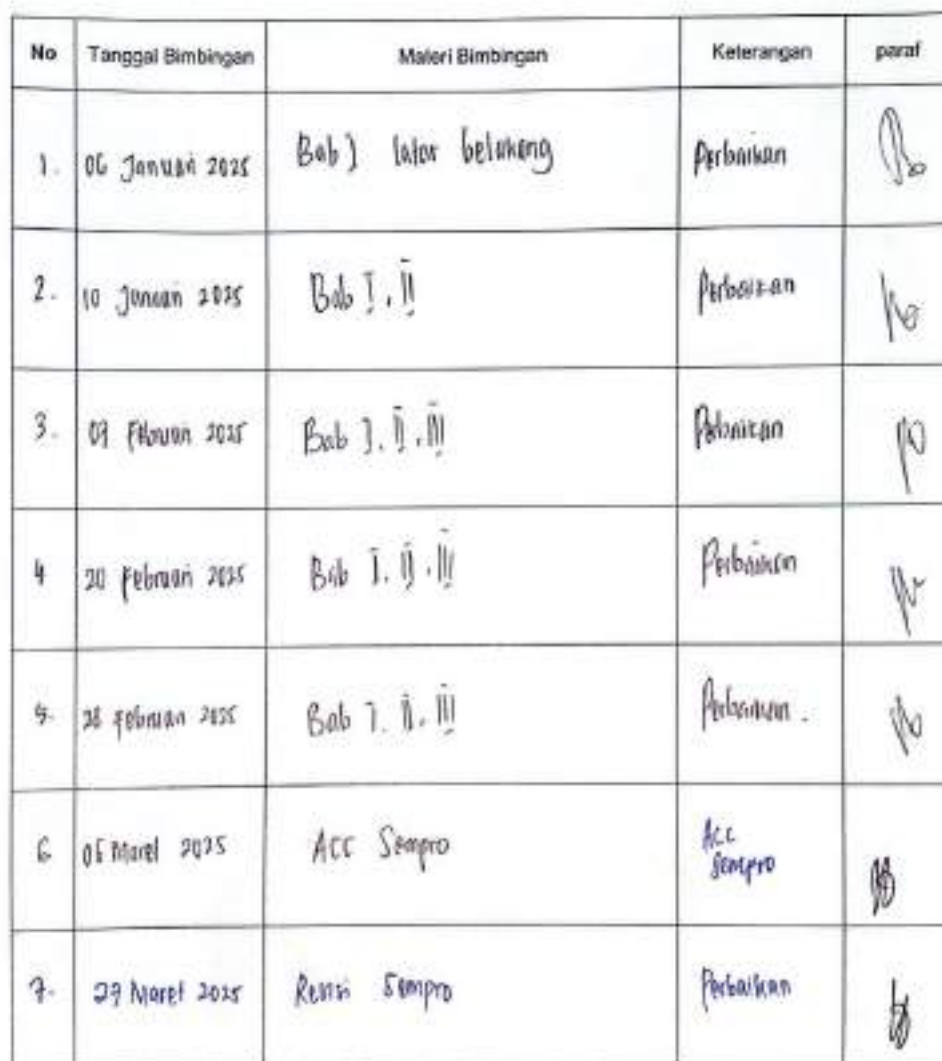 No Tanggal Bimbingan Materi Bimbingan Keterangan paraf
1. 06 Januari 2025 Bab I latar belakang Perbaikan
2. 10 Januari 2025 Bab I, II Perbaikan
3. Februari 2025 Bab I, II, III Perbaikan
4 20 Februari 2025 Bab I, II, III Perbaikan
5. 28 Februari 2025 Bab I, II, III Perbaikan.
6 Maret 2025 ACC Sempro Acc
Sempro
7. Maret 2025 Revisi Sempro Perbaikan